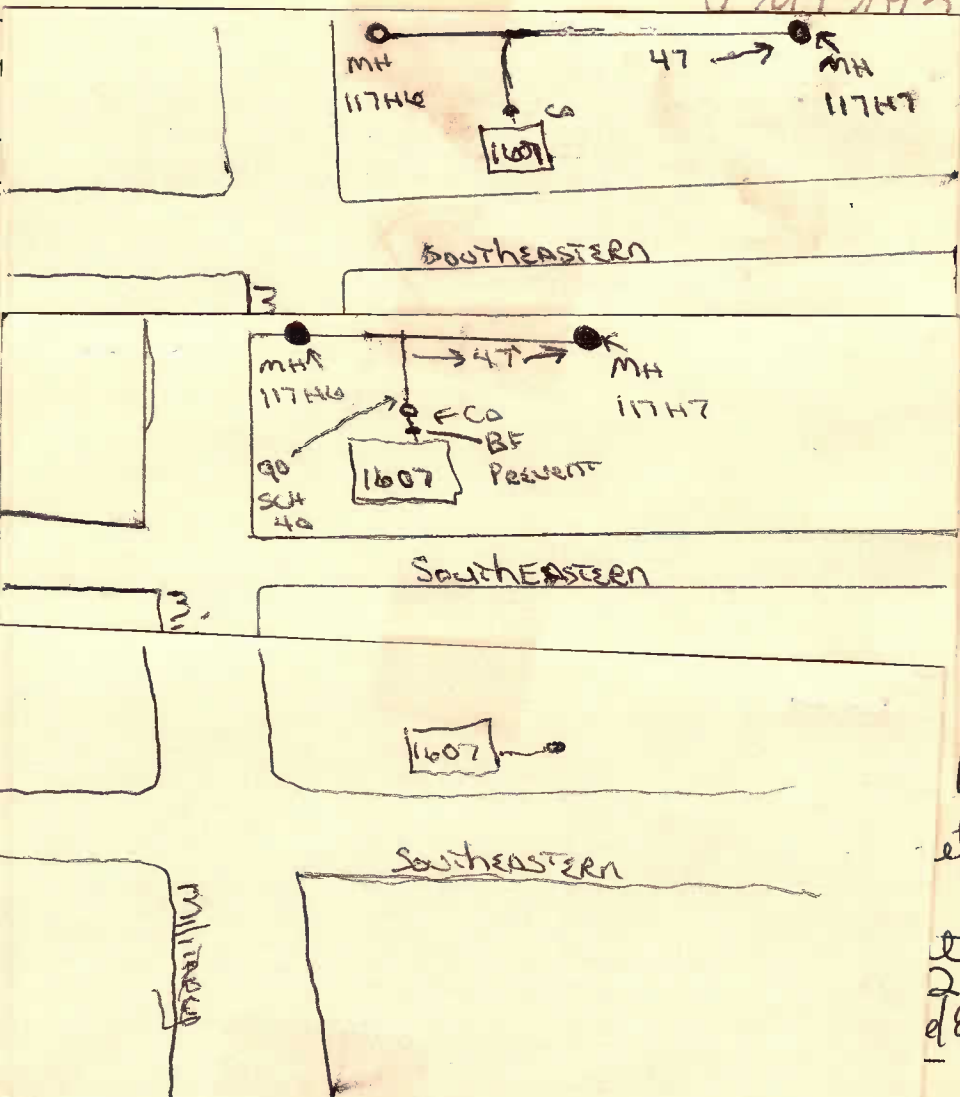 47
MH
117H6
MH
117H7
CO
1607
SOUTHEASTERN
47
MH
117H6
MH
117H7
CO
BF
PREVENT
90
SCH
40
1607
SOUTHEASTERN
1607
SOUTHEASTERN